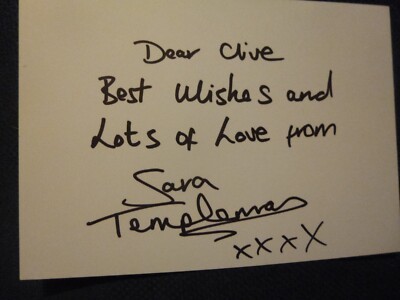 Dear Clive
Best Wishes and
Lots of Love from
Sara
Templeman
xxxx